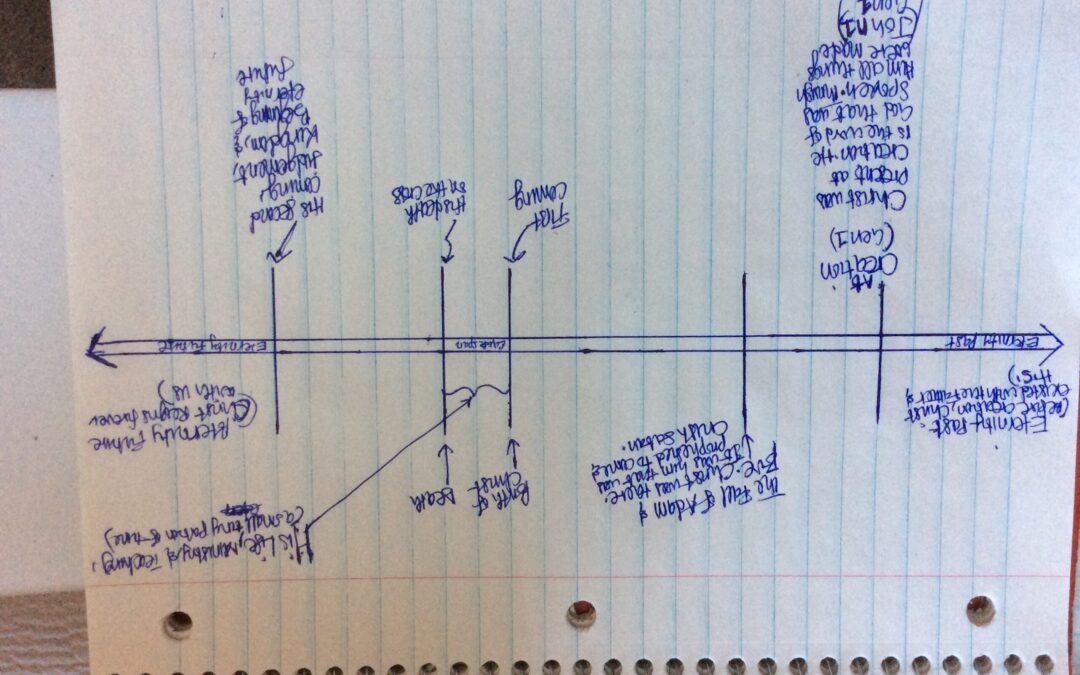 His Life, Ministry & Teaching,
(a small tiny portion of time)
The Fall of Adam &
Eve. Christ was there.
It was him that was
prophesied to come &
crush satan.
Birth of
Christ
Death
Eternity Past:
(before creation, Christ
existed with the Father &
H.S.)
Eternity Future
(Christ Reigns forever
with us)
Eternity Past
Life span
Eternity Future
At
Creation
(Gen 1)
Christ was
present at
creation. He
is the word of
God that was
spoken. Through
Him all things
were made.
(John 1
Gen 1
First
coming
His death
on the cross
His second
coming,
Judgement,
Kingdom, &
Beginning of
eternity
future